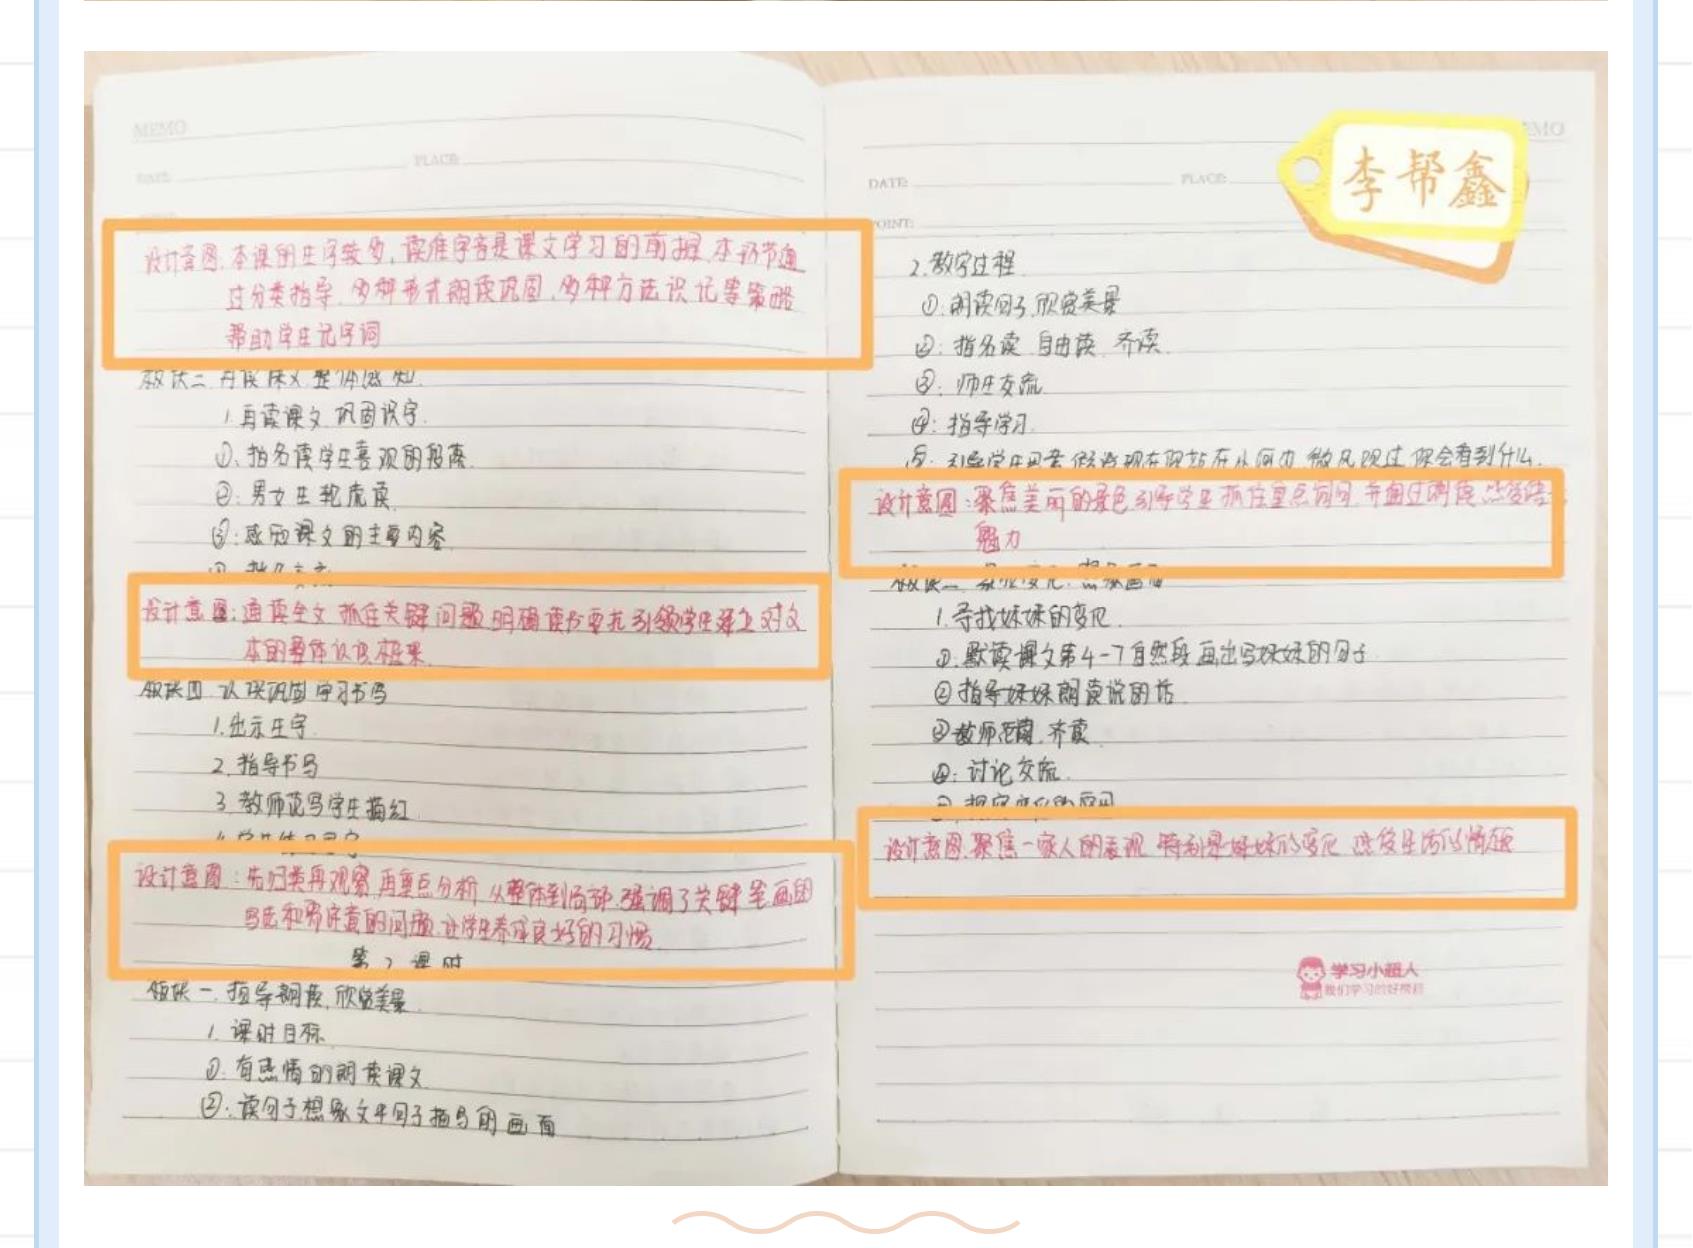 MEMO
PLACE:
DATE:
设计意图:本课的生字较多,读准字音是课文学习的前提,本环节通
过分类指导,多种形式朗读巩固,多种方法识记等策略
帮助学生记字词
板块二 再读课文 整体感知.
1.再读课文 巩固识字.
①、指名读学生喜欢的段落.
②:男女生轮流读.
③:感知课文的主要内容
设计意图:通读全文 抓住关键问题 明确读书要求 引领学生建立对文
本的整体认识框架.
板块四 认识巩固 学习书写
1.出示生字.
2.指导书写
3.教师范写学生描红.
4.学生练习写字
设计意图:先归类再观察,再重点分析 从整体到局部,强调了关键笔画的
写法和易错字的问题,让学生养成良好的习惯.
第2课时
板块一.指导朗读,欣赏美景.
1.课时目标.
①.有感情的朗读课文.
②:读句子想象文中句子描写的画面
李帮鑫
EMO
DATE:
PLACE:
POINT:
2.教学过程.
①.朗读句子,欣赏美景
②:指名读 自由读、齐读.
③.师生交流.
④:指导学习.
⑤:引导学生思考 假设现在你站在小河边,微风吹过,你会看到什么.
设计意图:聚焦美丽的景色 引导学生抓住重点词句,并通过朗读,感受语
魅力
1.寻找妹妹的变化.
①.默读课文第4-7自然段 画出写妹妹的句子
②指导妹妹朗读说的话.
③教师范读.齐读.
④:讨论交流.
设计意图:聚焦一家人的表现,特别是妹妹的变化,感受生活的情趣
学习小超人
我们学习的好榜样